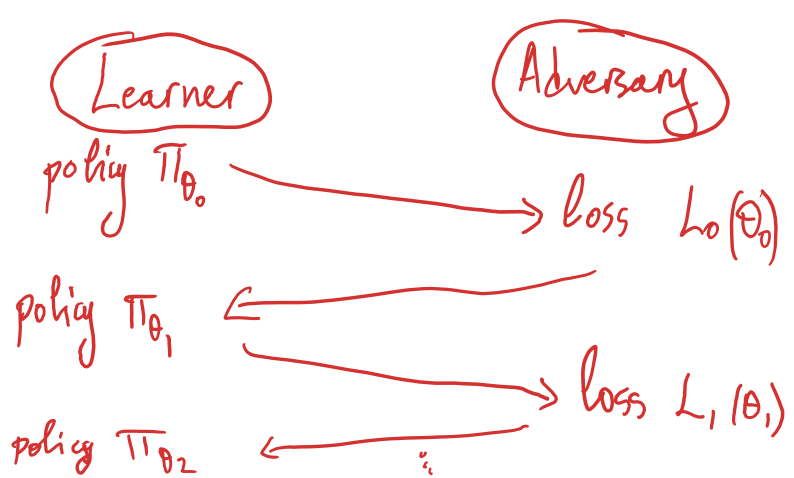 Learner Adversary
policy π_θ₀ loss L₀(θ₀)
policy π_θ₁
loss L₁(θ₁)
policy π_θ₂
⋮